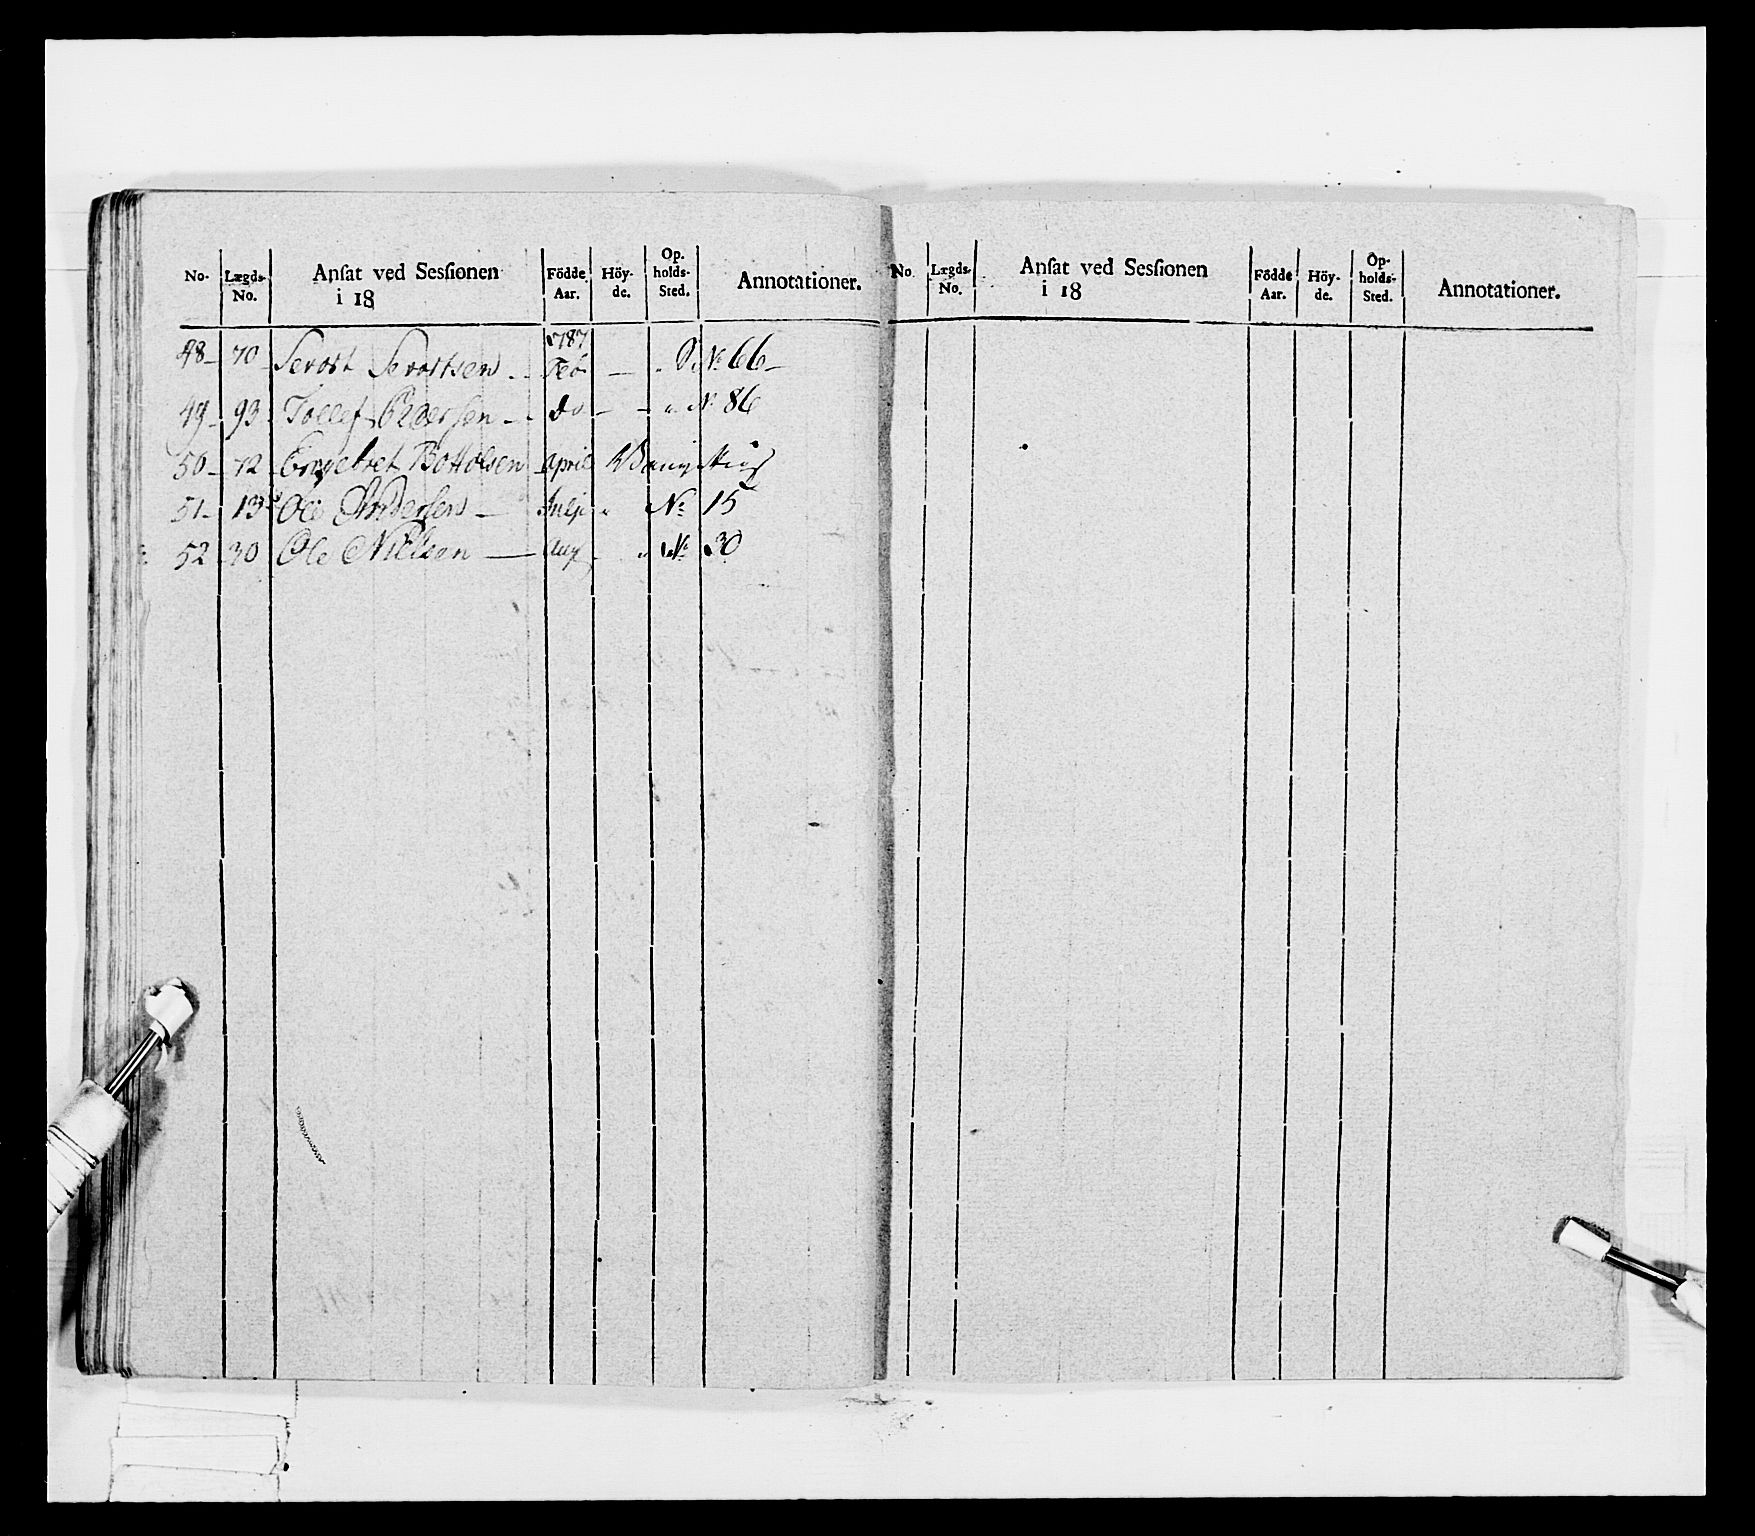 No. Lægds- No. Anſat ved Sesſionen i 18 Födde Aar. Höy- de. Op- holds- Sted. Annotationer.
1787
48 - 70 Feb - No 66 -
49 - 93 Tollef Pedersen - do - - " No 86
50 - 72 Engebret Bottolsen April
51 - 13 Ole Andersen - Julji " No 15
52 30 Ole Nielsen - Aug - " No 30
No. Lægds- No. Anſat ved Sesſionen i 18 Födde Aar. Höy- de. Op- holds- Sted. Annotationer.